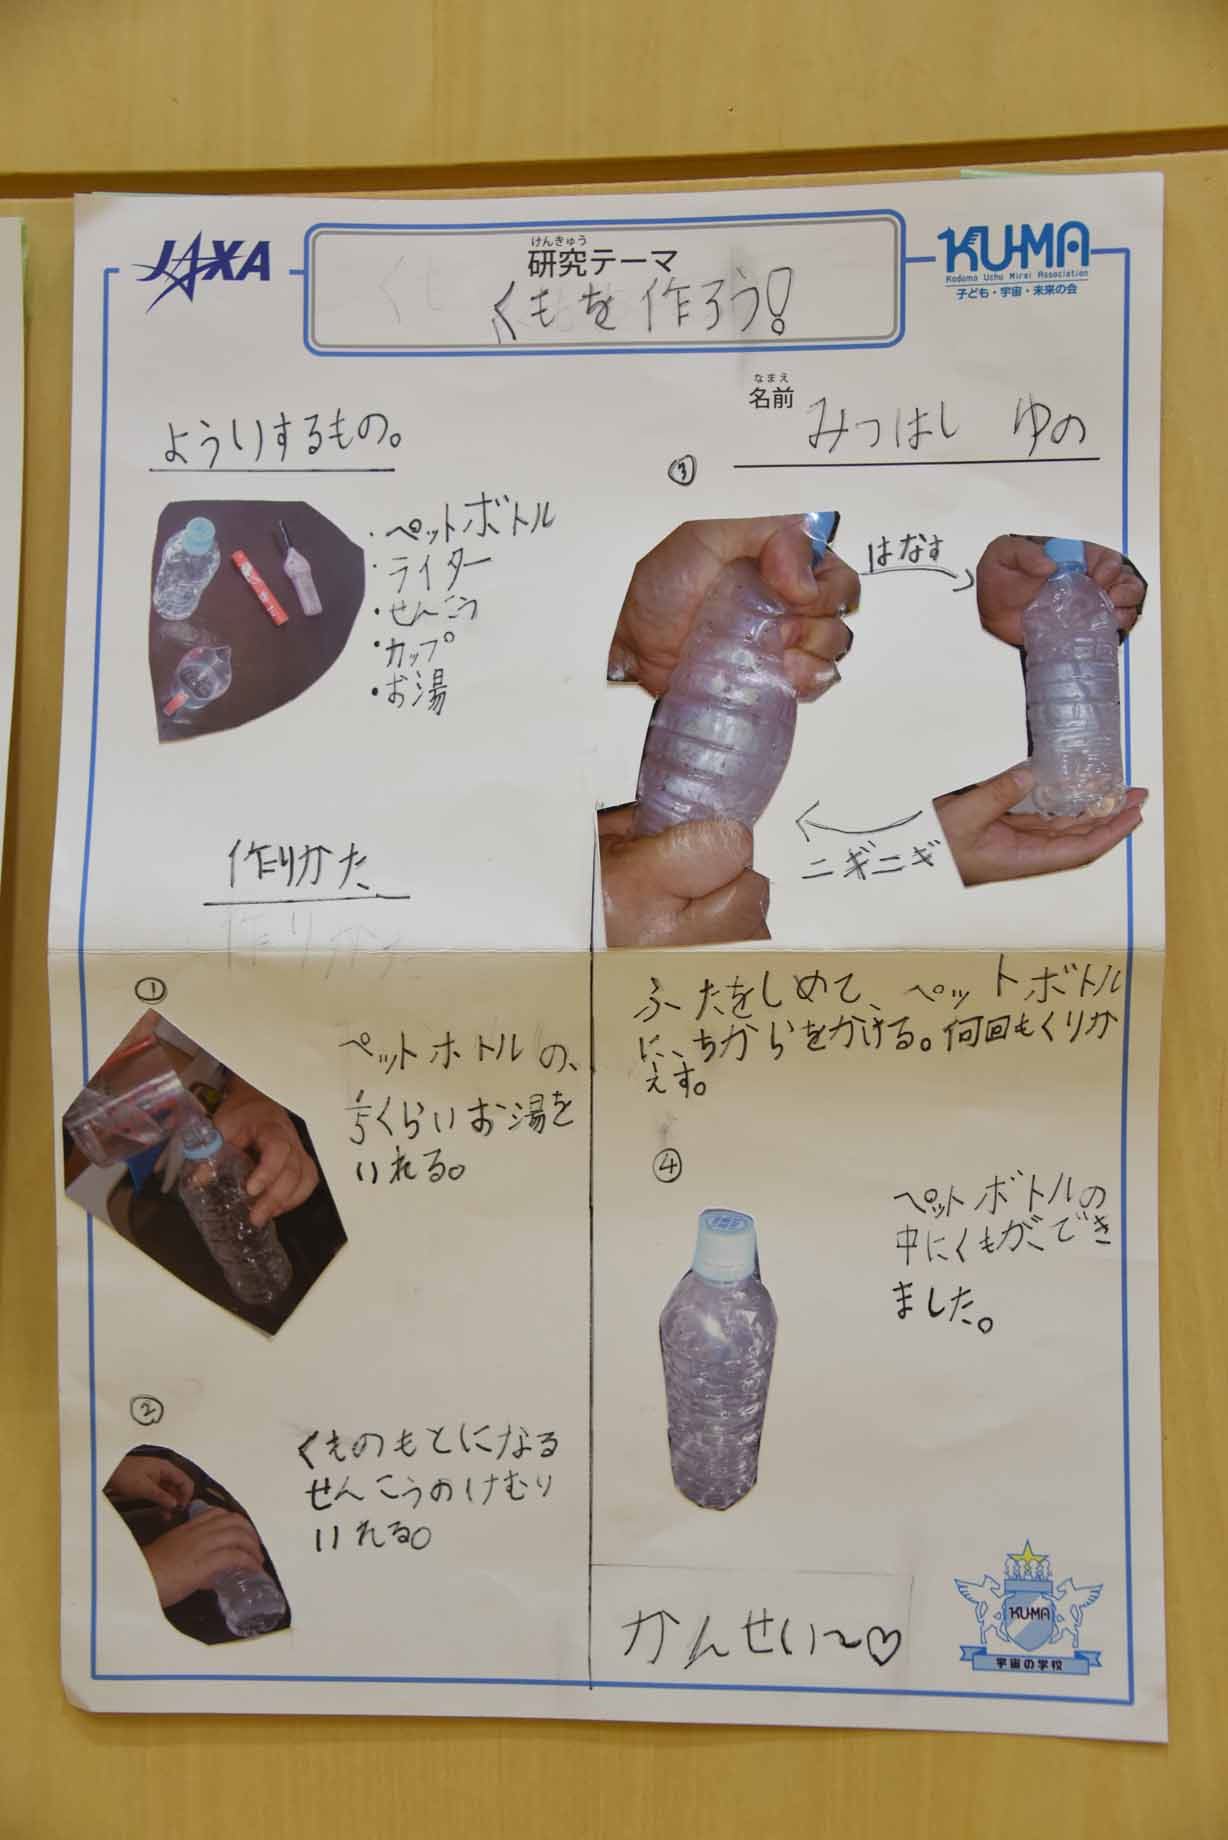 JAXA
けんきゅう
研究テーマ
くもを作ろう!
KU-MA
Kodomo Uchu Mirai Association
子ども・宇宙・未来の会
なまえ
名前
みつはし ゆの
よういするもの。
・ペットボトル
・ライター
・せんこう
・カップ
・お湯
作りかた
①
ペットボトルの、
1/5くらいお湯を
いれる。
②
くものもとになる
せんこうのけむり
いれる。
③
はなす
ニギニギ
ふたをしめて、ペットボトル
に、ちからをかける。何回もくりか
えす。
④
ペットボトルの
中にくもができ
ました。
かんせい〜♡
KUMA
宇宙の学校